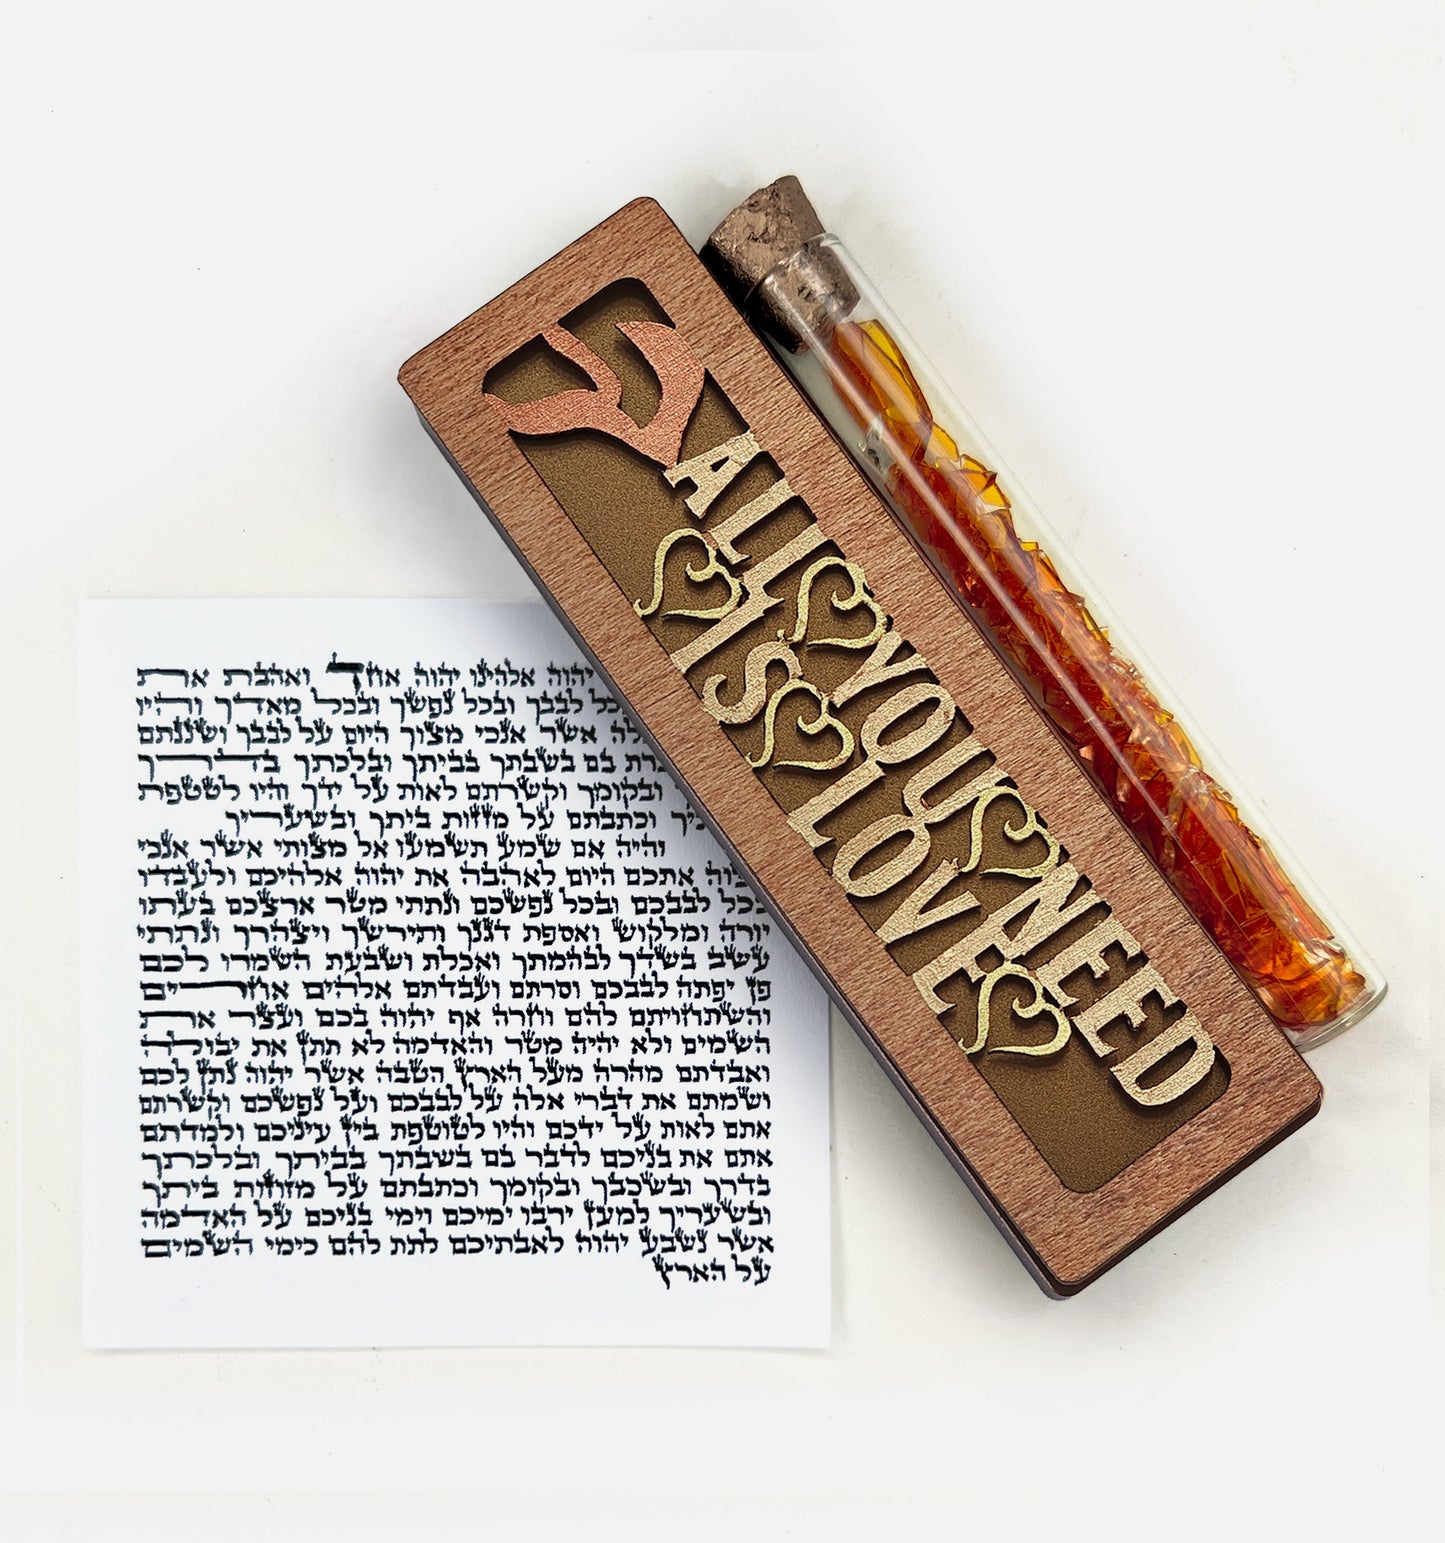 ש
ALL YOU NEED
IS LOVE
יהוה אלהינו יהוה אחד ואהבת את
לבבך ובכל נפשך ובכל מאדך והיו
אשר אנכי מצוך היום על לבבך ושננתם
בם בשבתך בביתך ובלכתך בדרך
ובקומך וקשרתם לאות על ידך והיו לטטפת
וכתבתם על מזזות ביתך ובשעריך
והיה אם שמע תשמעו אל מצותי אשר אנכי
אתכם היום לאהבה את יהוה אלהיכם ולעבדו
בכל לבבכם ובכל נפשכם ונתתי מטר ארצכם בעתו
יורה ומלקוש ואספת דגנך ותירשך ויצהרך ונתתי
עשב בשדך לבהמתך ואכלת ושבעת השמרו לכם
פן יפתה לבבכם וסרתם ועבדתם אלהים אחרים
והשתחויתם להם וחרה אף יהוה בכם ועצר את
השמים ולא יהיה מטר והאדמה לא תתן את יבולה
ואבדתם מהרה מעל הארץ הטבה אשר יהוה נתן לכם
ושמתם את דברי אלה על לבבכם ועל נפשכם וקשרתם
אתם לאות על ידכם והיו לטוטפת בין עיניכם ולמדתם
אתם את בניכם לדבר בם בשבתך בביתך ובלכתך
בדרך ובשכבך ובקומך וכתבתם על מזוזות ביתך
ובשעריך למען ירבו ימיכם וימי בניכם על האדמה
אשר נשבע יהוה לאבתיכם לתת להם כימי השמים
על הארץ